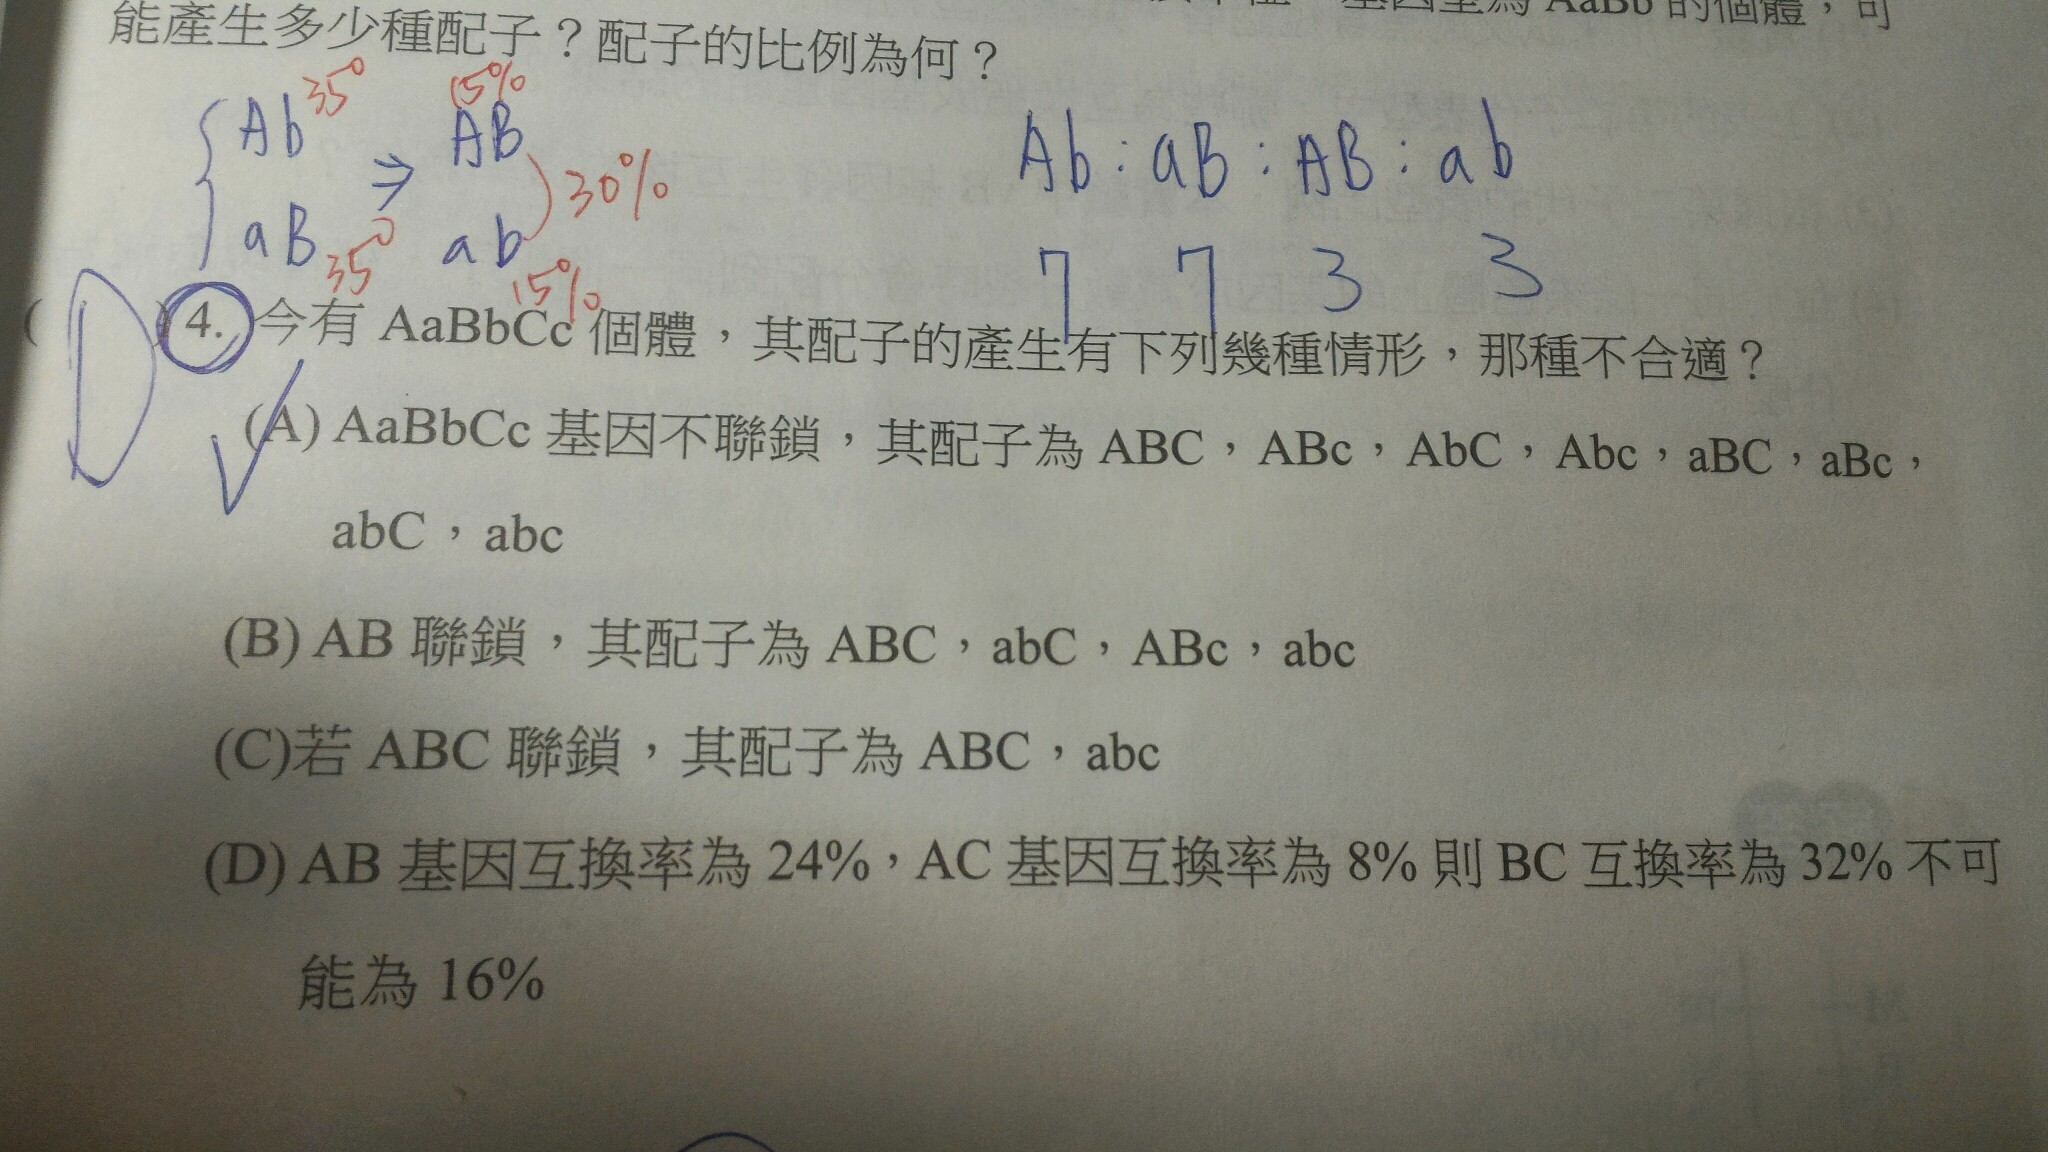 基因型為 AaBb 的個體，可
能產生多少種配子？配子的比例為何？
Ab 35% ⇒ AB 15%
aB 35% ab 15% 30%
Ab : aB : AB : ab
7 7 3 3
( D )4. 今有 AaBbCc 個體，其配子的產生有下列幾種情形，那種不合適？
(A) AaBbCc 基因不聯鎖，其配子為 ABC，ABc，AbC，Abc，aBC，aBc，
abC，abc
(B) AB 聯鎖，其配子為 ABC，abC，ABc，abc
(C)若 ABC 聯鎖，其配子為 ABC，abc
(D) AB 基因互換率為 24%，AC 基因互換率為 8% 則 BC 互換率為 32% 不可
能為 16%